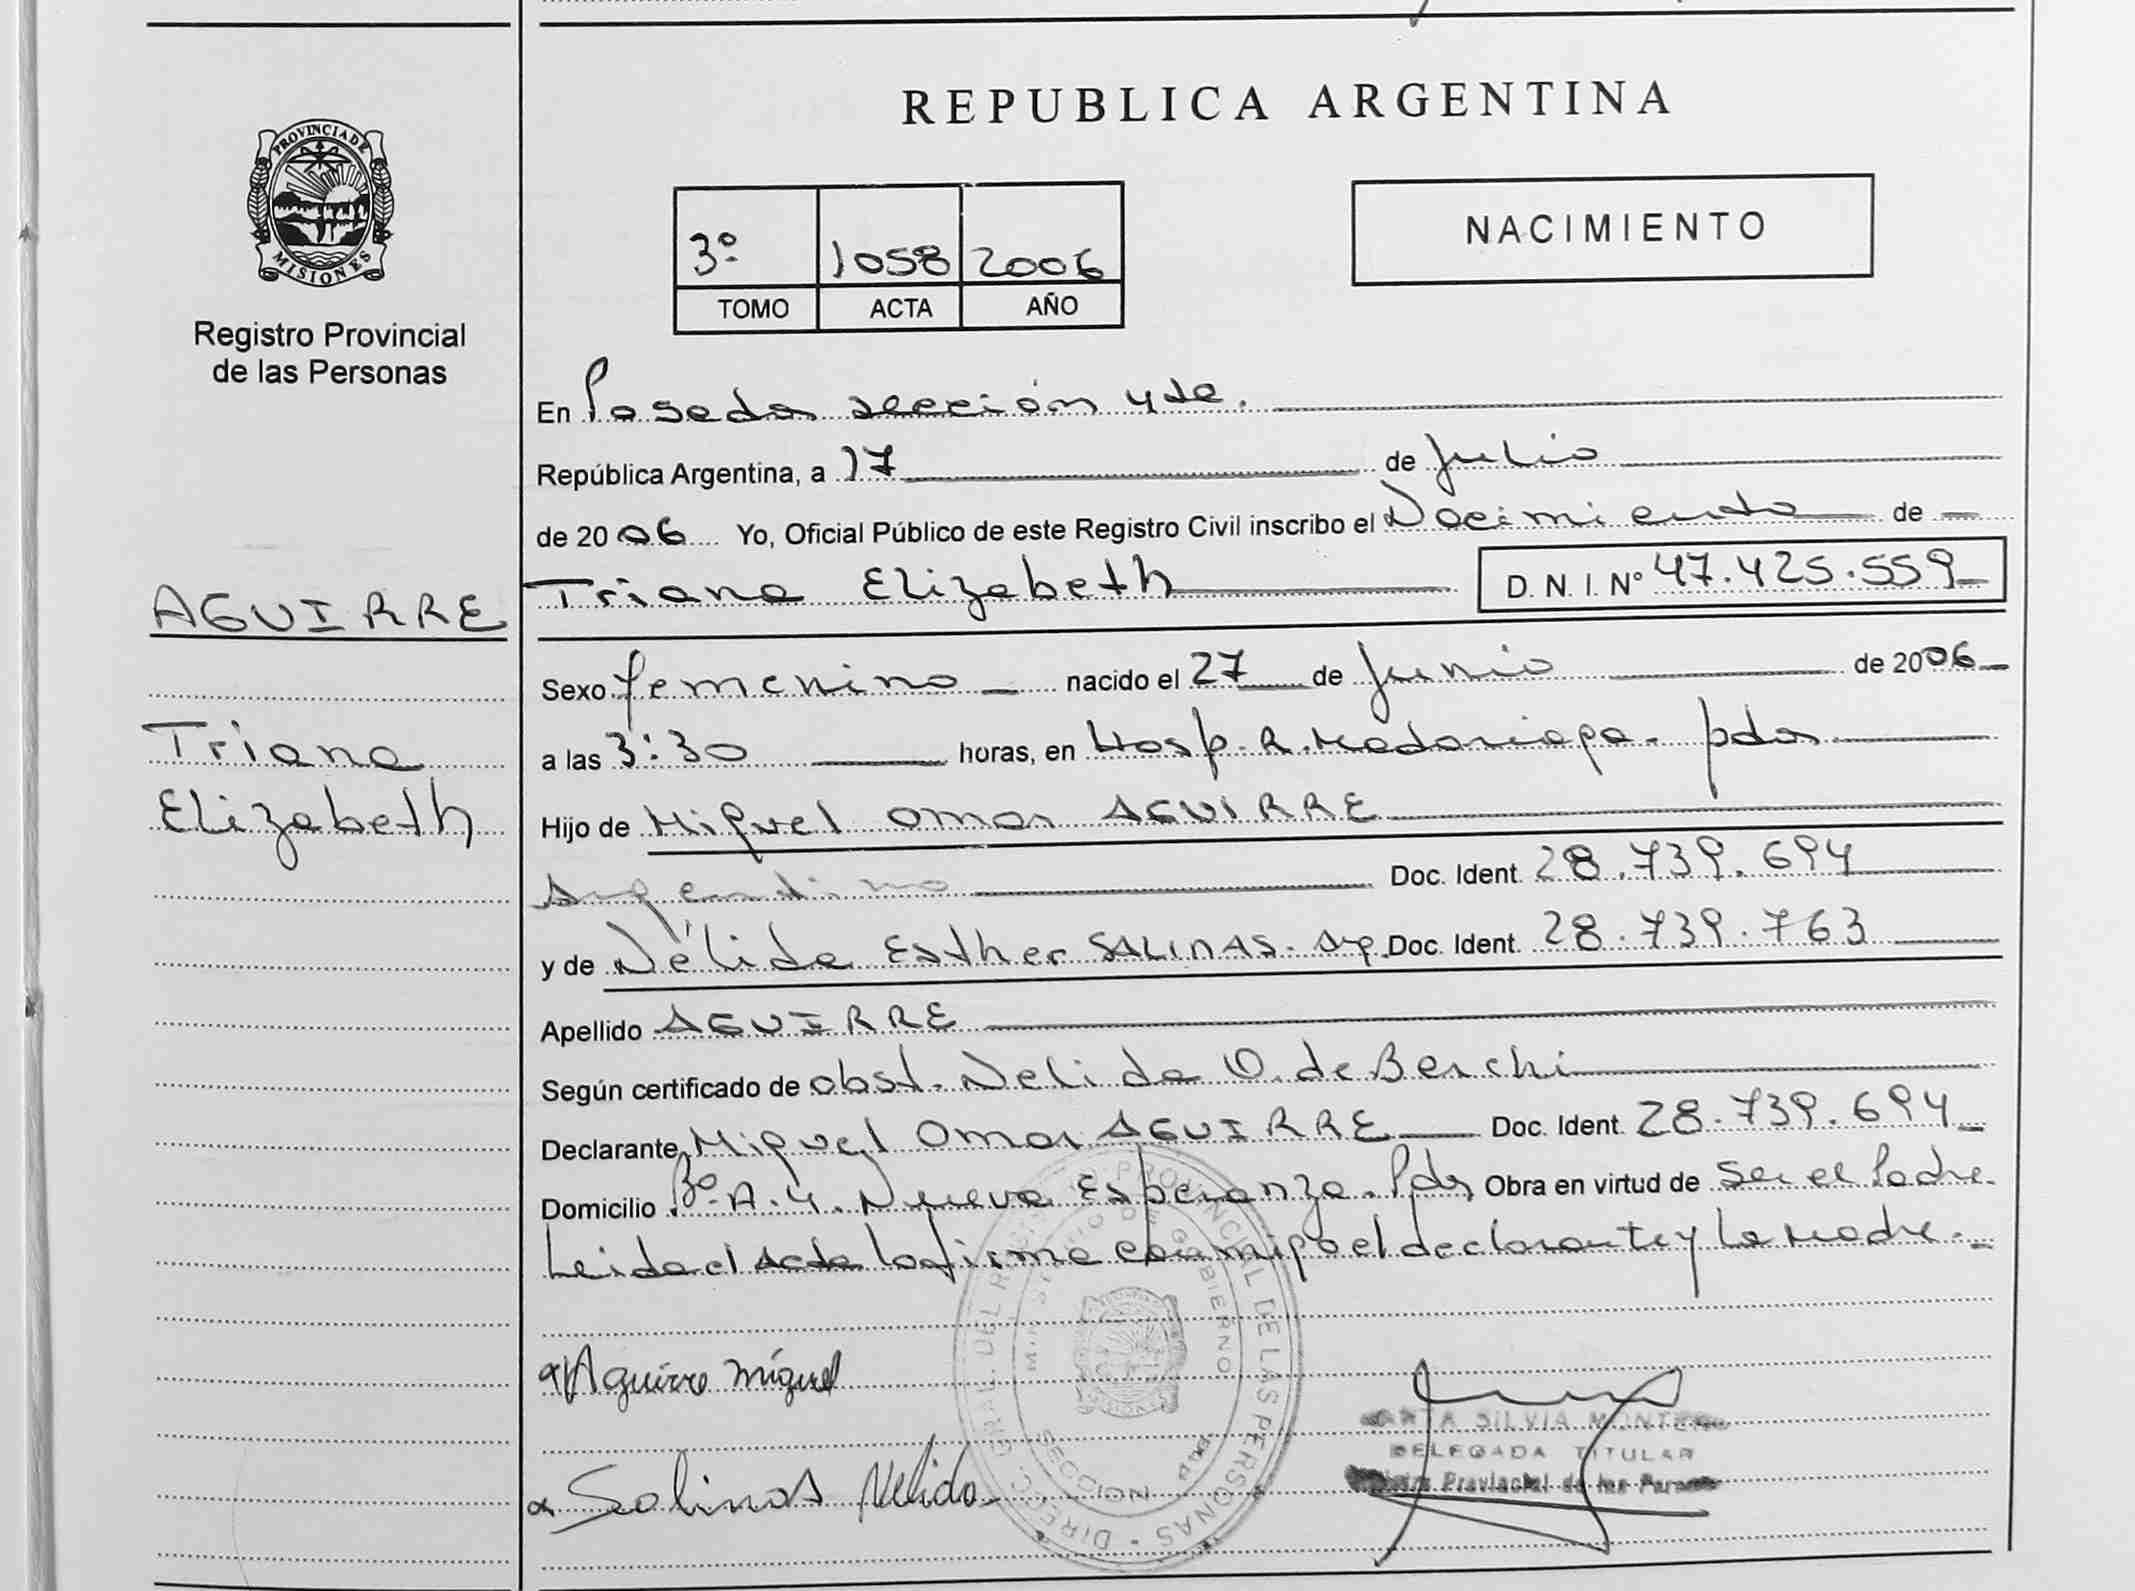 REPUBLICA ARGENTINA
PROVINCIA DE
MISIONES
Registro Provincial
de las Personas
NACIMIENTO
3º 1058 2006
TOMO ACTA AÑO
En Posadas sección 4ta.
República Argentina, a 17 de Julio
de 2006 Yo, Oficial Público de este Registro Civil inscribo el Nacimiento de
AGUIRRE
Triana Elizabeth D. N. I. Nº 47.425.559
Sexo femenino nacido el 27 de Junio de 2006
Triana
a las 3:30 horas, en Hosp. R. Madariaga. Pdas.
Elizabeth
Hijo de Miguel Omar AGUIRRE
Argentino Doc. Ident. 28.739.694
y de Nélida Esther SALINAS. Arg. Doc. Ident. 28.739.763
Apellido AGUIRRE
Según certificado de obst. Nelida O. de Berchi
Declarante Miguel Omar AGUIRRE Doc. Ident. 28.739.694
Domicilio Bº A.4. Nueva Esperanza. Pdas Obra en virtud de ser el Padre.
Leida el Acta la firma conmigo el declarante y la Madre.
Aguirre Miguel
Salinas Nelida
SILVIA
DELEGADA TITULAR
Provincial de las
DIRECC. GRAL. DEL PROVINCIAL DE LAS PERSONAS
MINISTERIO DE GOBIERNO
SECCION
MISIONES